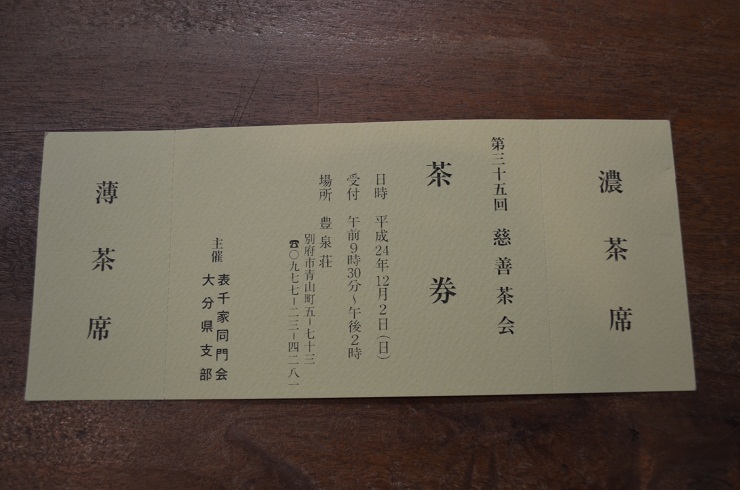 濃茶席
第三十五回 慈善茶会
茶券
日時 平成24年12月2日(日)
受付 午前9時30分~午後2時
場所 豊泉荘
別府市青山町五−七十三
☎〇九七七−二三−四二八一
主催 表千家同門会
大分県支部
薄茶席